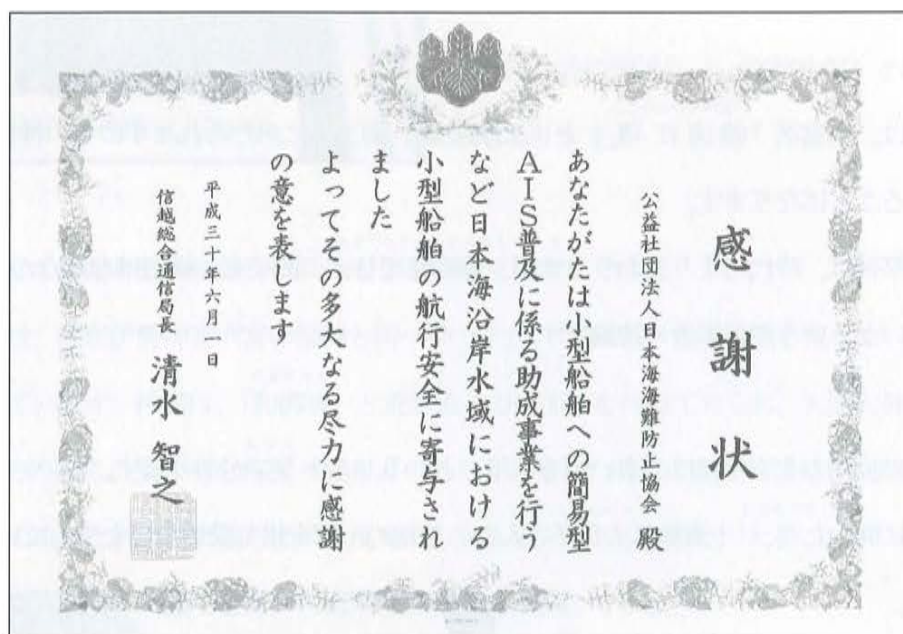 感謝状
公益社団法人日本海海難防止協会 殿
あなたがたは小型船舶への簡易型
AIS普及に係る助成事業を行う
など日本海沿岸水域における
小型船舶の航行安全に寄与され
ました
よってその多大なる尽力に感謝
の意を表します
平成三十年六月一日
信越総合通信局長 清水 智之